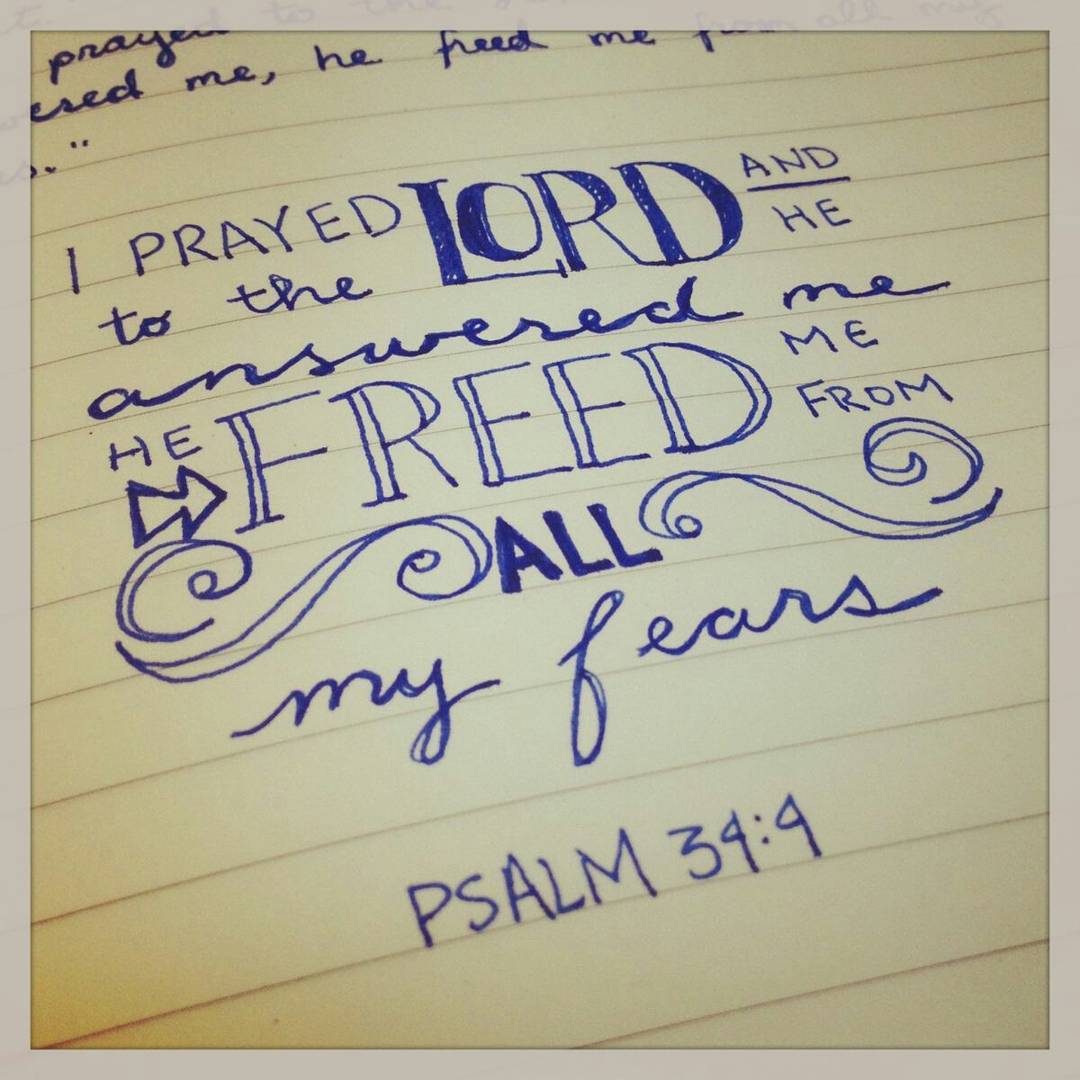 prayed
ered me, he freed me from all my
s."
I PRAYED LORD AND
to the HE
answered me
HE FREED ME
FROM
ALL
my fears
PSALM 34:4